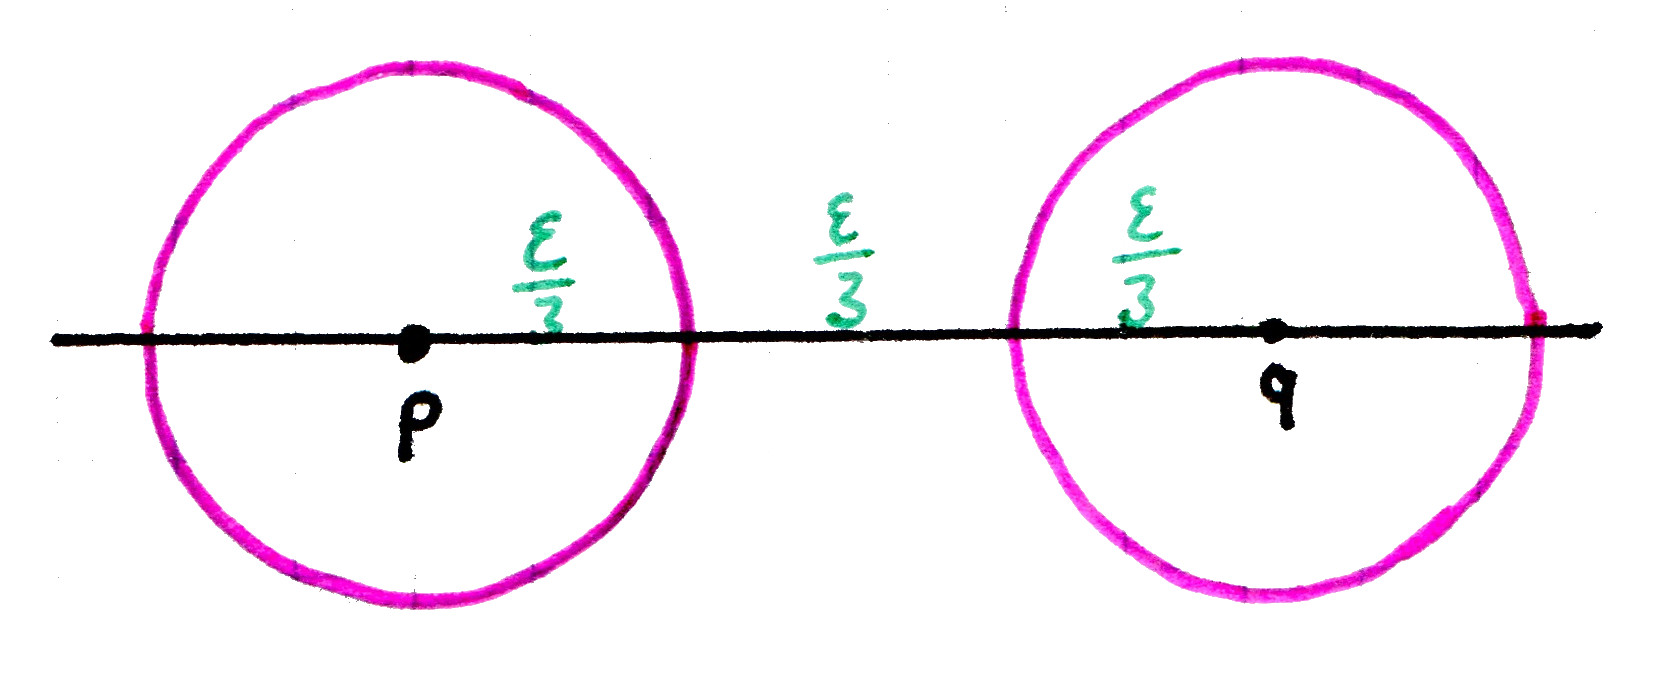 ε/3 ε/3 ε/3
p q